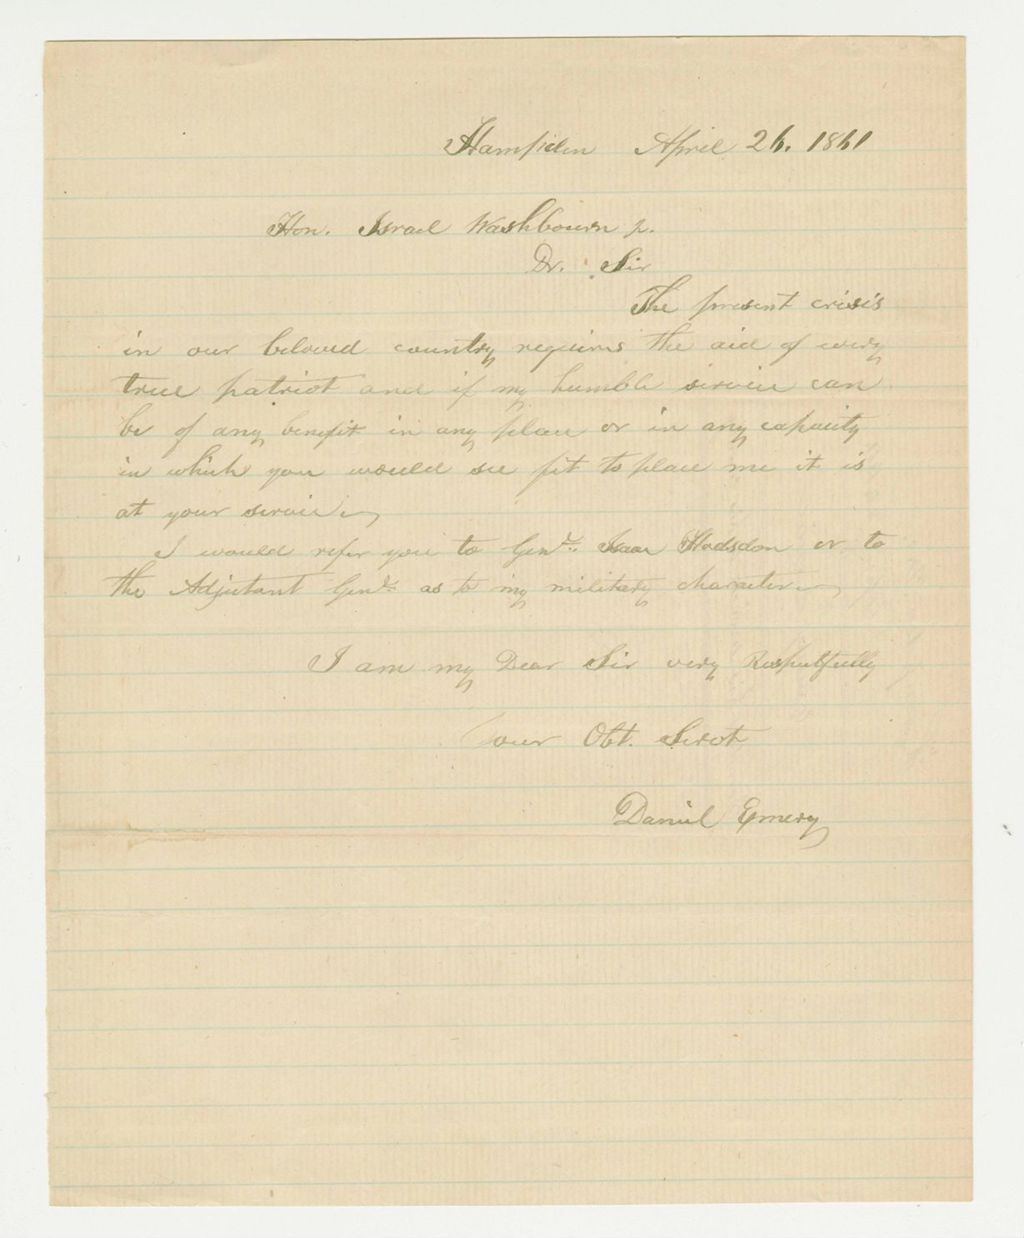 Hampden April 26. 1861
Hon. Israel Washbourn Jr.
Dr. Sir
The present crisis
in our beloved country requires the aid of every
true patriot and if my humble service can
be of any benefit in any place or in any capacity
in which you would see fit to place me it is
at your service
I would refer you to Genl. Isaac Hodsdon or to
the Adjutant Genl. as to my military character
I am my Dear Sir very Respectfully
Your Obt. Servt
Daniel Emery